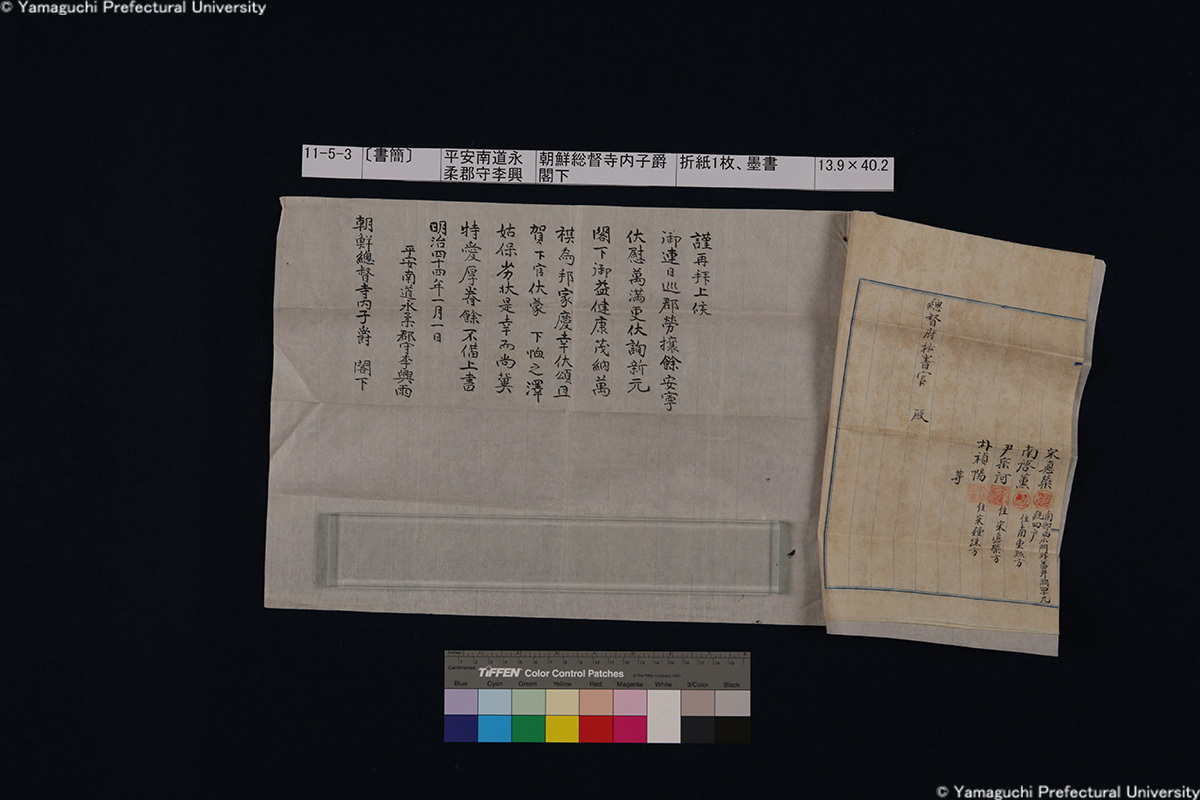 © Yamaguchi Prefectural University
11-5-3
〔書簡〕
平安南道永
柔郡守李興
朝鮮総督寺内子爵
閣下
折紙1枚、墨書
13.9×40.2
謹再拜上候
御連日巡郡勞攘餘安寧
伏慰萬滿更伏詢新元
閣下御益健康茂納萬
祺為邦家慶幸伏頌且
賀下官伏蒙 下恤之澤
姑保劣狀是幸而尚冀
特愛厚眷餘不備上書
明治四十四年一月一日
平安南道永柔郡守李興雨
朝鮮總督寺內子爵 閣下
總督府秘書官 殿
南啓薰
朴禎陽
等
TIFFEN Color Control Patches
© The Tiffen Company, 2007
Centimetres
Blue Cyan Green Yellow Red Magenta White 3/Color Black
© Yamaguchi Prefectural University